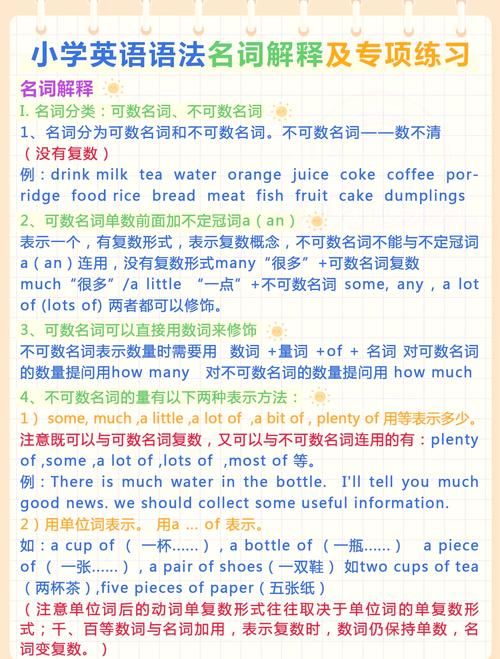 小学英语语法名词解释及专项练习
名词解释
I. 名词分类：可数名词、不可数名词
1、名词分为可数名词和不可数名词。不可数名词——数不清
（没有复数）
例：drink milk tea water orange juice coke coffee por-
ridge food rice bread meat fish fruit cake dumplings
2、可数名词单数前面加不定冠词a（an）
表示一个，有复数形式，表示复数概念，不可数名词不能与不定冠词
a（an）连用，没有复数形式many“很多”+可数名词复数
much“很多”/a little “一点”+不可数名词 some, any , a lot
of (lots of) 两者都可以修饰。
3、可数名词可以直接用数词来修饰
不可数名词表示数量时需要用 数词 +量词 +of + 名词 对可数名词
的数量提问用how many 对不可数名词的数量提问用 how much
4、不可数名词的量有以下两种表示方法：
1） some, much ,a little ,a lot of ,a bit of , plenty of 用等表示多少。
注意既可以与可数名词复数，又可以与不可数名词连用的有：plenty
of ,some ,a lot of ,lots of ,most of 等。
例：There is much water in the bottle. I'll tell you much
good news. we should collect some useful information.
2）用单位词表示。 用a ... of 表示。
如：a cup of（ 一杯......）, a bottle of（一瓶......） a piece
of（ 一张......）, a pair of shoes（一双鞋）如two cups of tea
（两杯茶）,five pieces of paper（五张纸）
（注意单位词后的动词单复数形式往往取决于单位词的单复数形
式；千、百等数词与名词加用，表示复数时，数词仍保持单数，名
词变复数。）